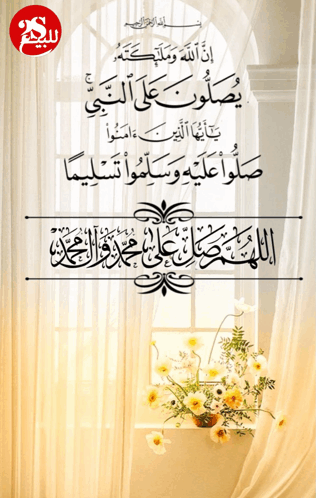 بسم الله الرحمن الرحيم
إِنَّ ٱللَّهَ وَمَلَٰٓئِكَتَهُۥ
يُصَلُّونَ عَلَى ٱلنَّبِيِّ ۚ
يَٰٓأَيُّهَا ٱلَّذِينَ ءَامَنُوا۟
صَلُّوا۟ عَلَيْهِ وَسَلِّمُوا۟ تَسْلِيمًا
اللهم صل على محمد وآل محمد